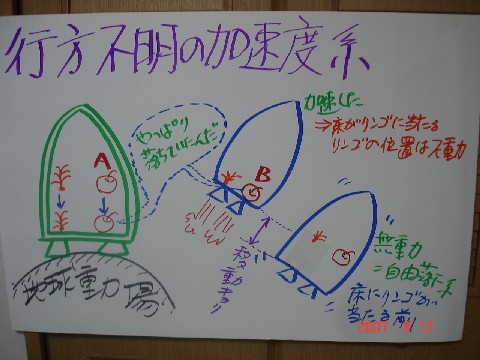 行方不明の加速度系
加速した
⇒床がリンゴに当たる
リンゴの位置は不動
やっぱり
落ちていたんだ
A
B
移動キョリ
無重力
=自由落下系
床にリンゴが
当たる前
地球重力場
2007